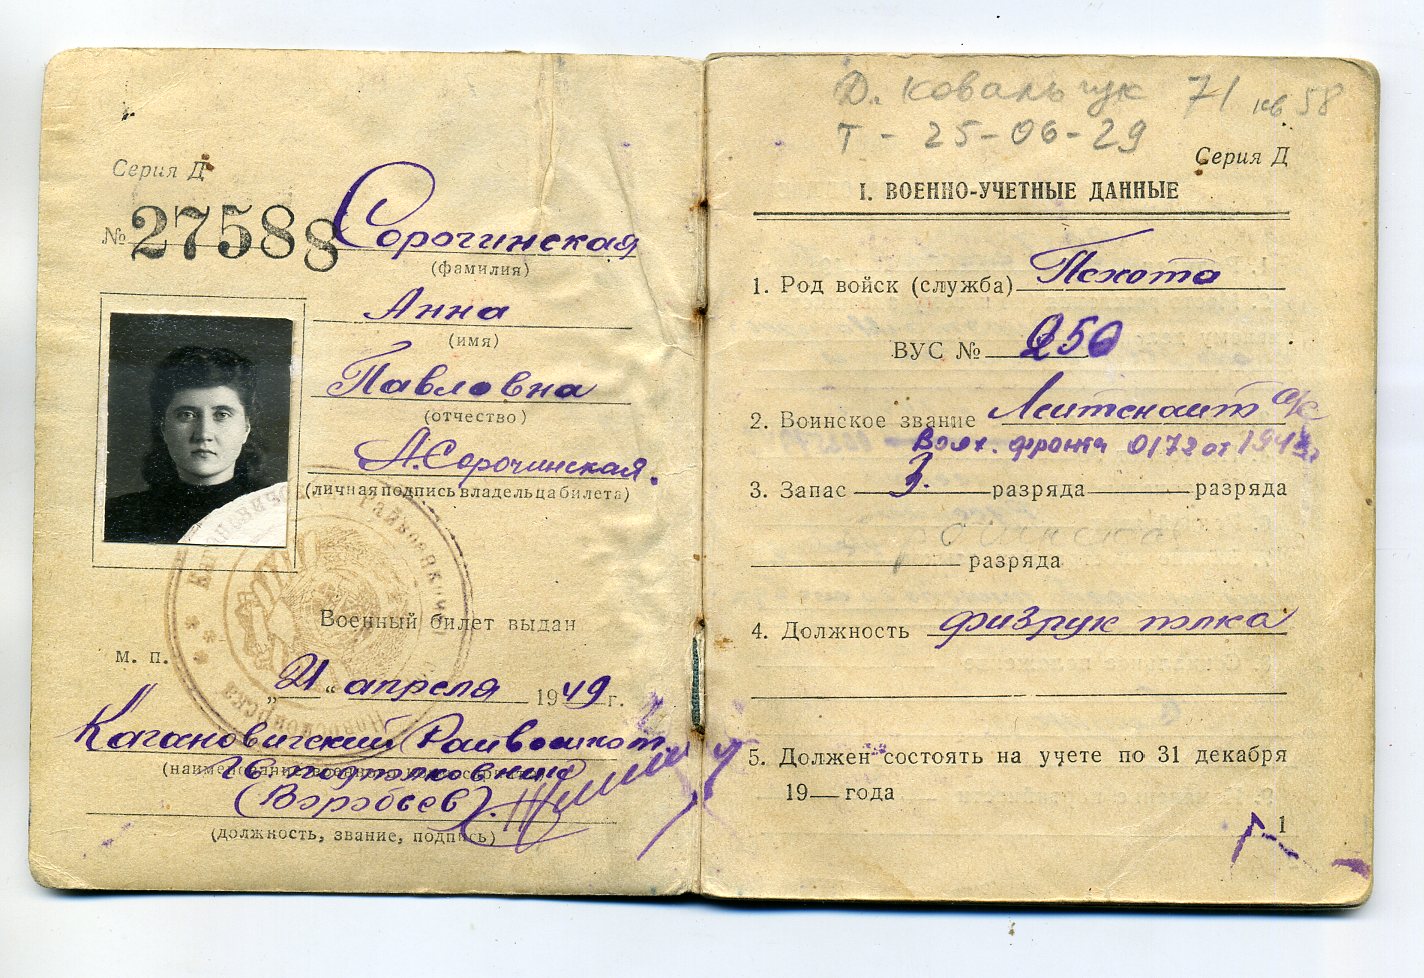 Серия Д
№ 275888
Сорочинская
(фамилия)
Анна
(имя)
Павловна
(отчество)
А. Сорочинская.
(личная подпись владельца билета)
Военный билет выдан
м. п.
„21“ апреля 1949 г.
Кагановичский Райвоенкомат
Подполковник
(Воробьев).
(должность, звание, подпись)
Д. Ковальчук 71 кв 58
Т - 25-06-29
Серия Д
I. ВОЕННО-УЧЕТНЫЕ ДАННЫЕ
1. Род войск (служба) Пехота
ВУС № 250
2. Воинское звание Лейтенант
фронта 0172 от 1943
3. Запас разряда разряда
разряда
4. Должность физрук полка
5. Должен состоять на учете по 31 декабря
19— года
1